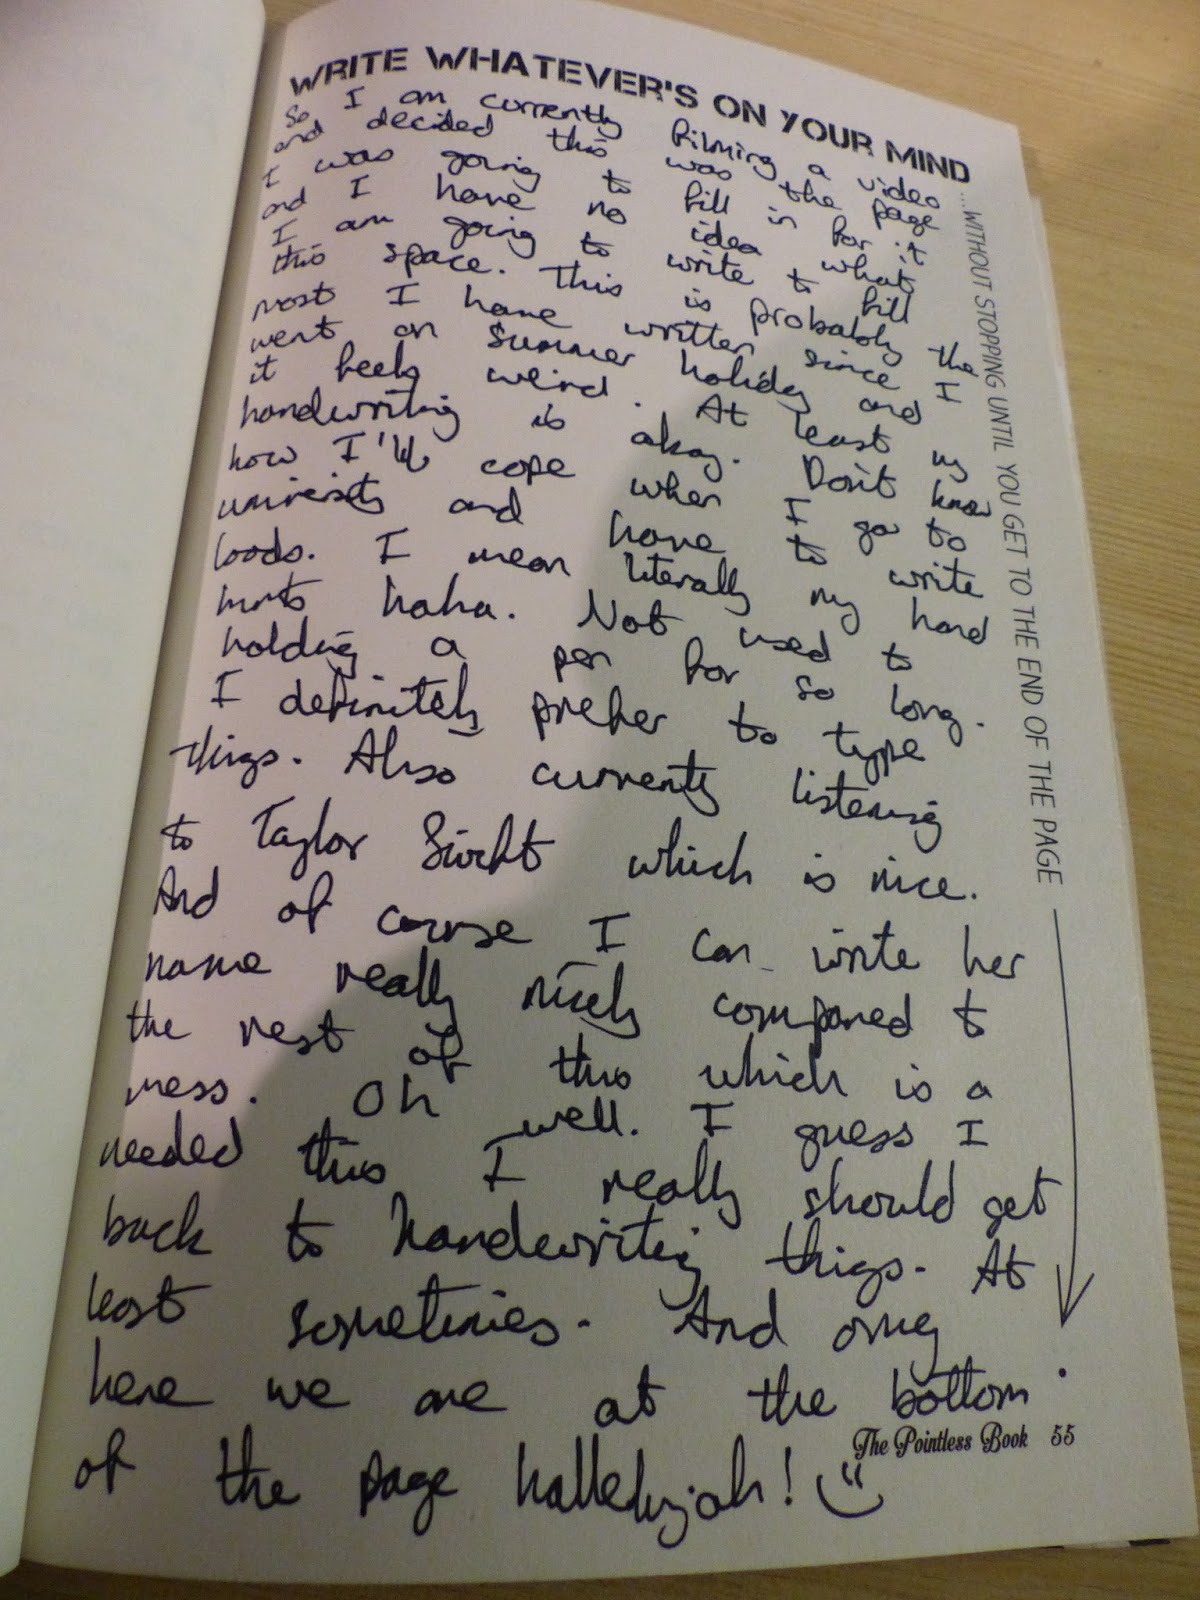 WRITE WHATEVER'S ON YOUR MIND
...WITHOUT STOPPING UNTIL YOU GET TO THE END OF THE PAGE
So I am currently filming a video
and decided this was the page
I was going to fill in for it
and I have no idea what
I am going to write to fill
this space. This is probably the
most I have written since I
went on summer holiday and
it feels weird. At least my
handwriting is okay. Don't know
how I'll cope when I go to
university and have to write
loads. I mean literally my hand
hurts haha. Not used to
holding a pen for so long.
I definitely prefer to type
things. Also currently listening
to Taylor Swift which is nice.
And of course I can write her
name really nicely compared to
the rest of this which is a
mess. Oh well. I guess I
needed this I really should get
back to handwriting things. At
least sometimes. And omg
here we are at the bottom
of the page hallelujah!
The Pointless Book 55